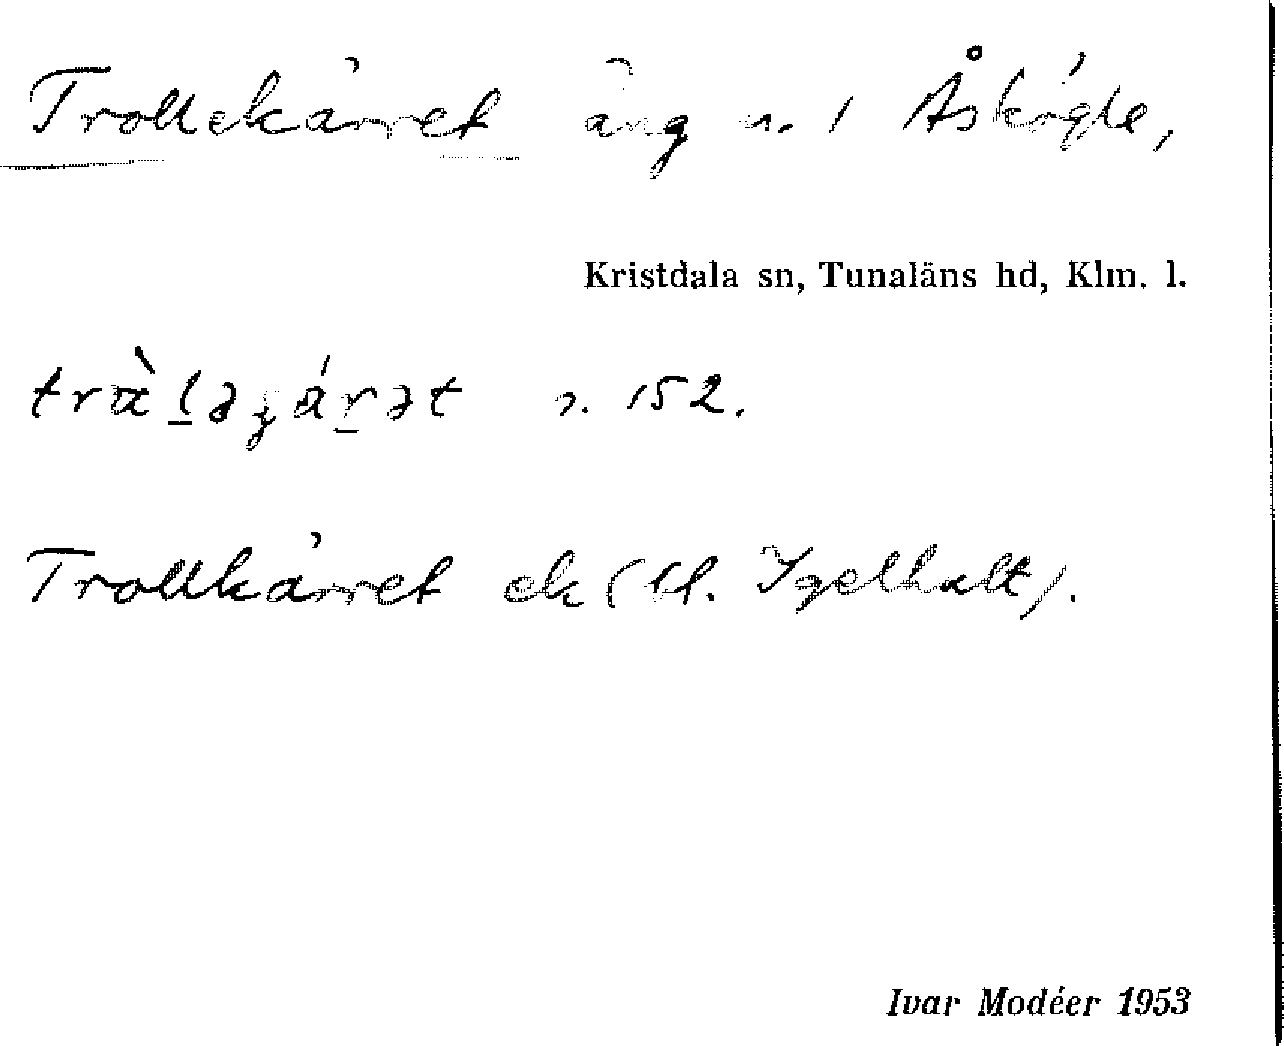 Trollekärret äng n. 1 Åskögle,
Kristdala sn, Tunaläns hd, Klm. l.
n. 152.
Trollkärret ek (bl. Igelhult).
Ivar Modéer 1953